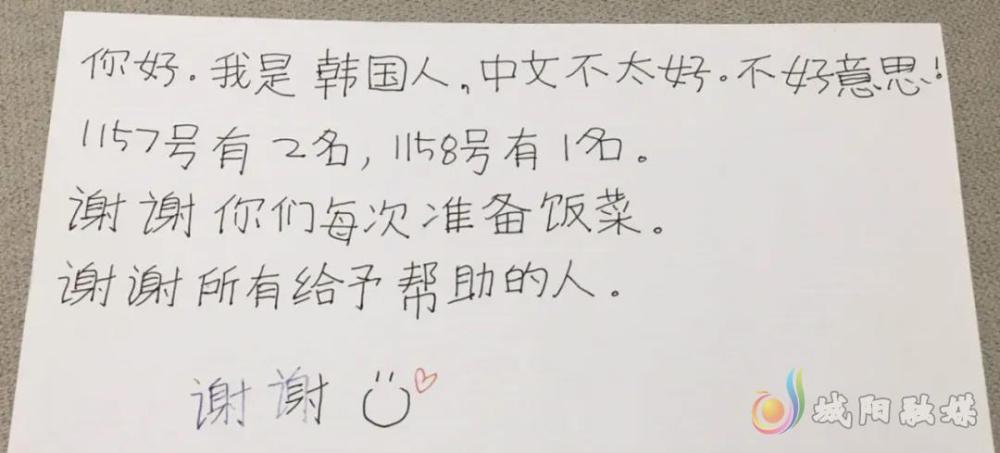 你好.我是韩国人,中文不太好.不好意思!
1157号有2名,1158号有1名。
谢谢你们每次准备饭菜。
谢谢所有给予帮助的人。
谢谢
城阳融媒